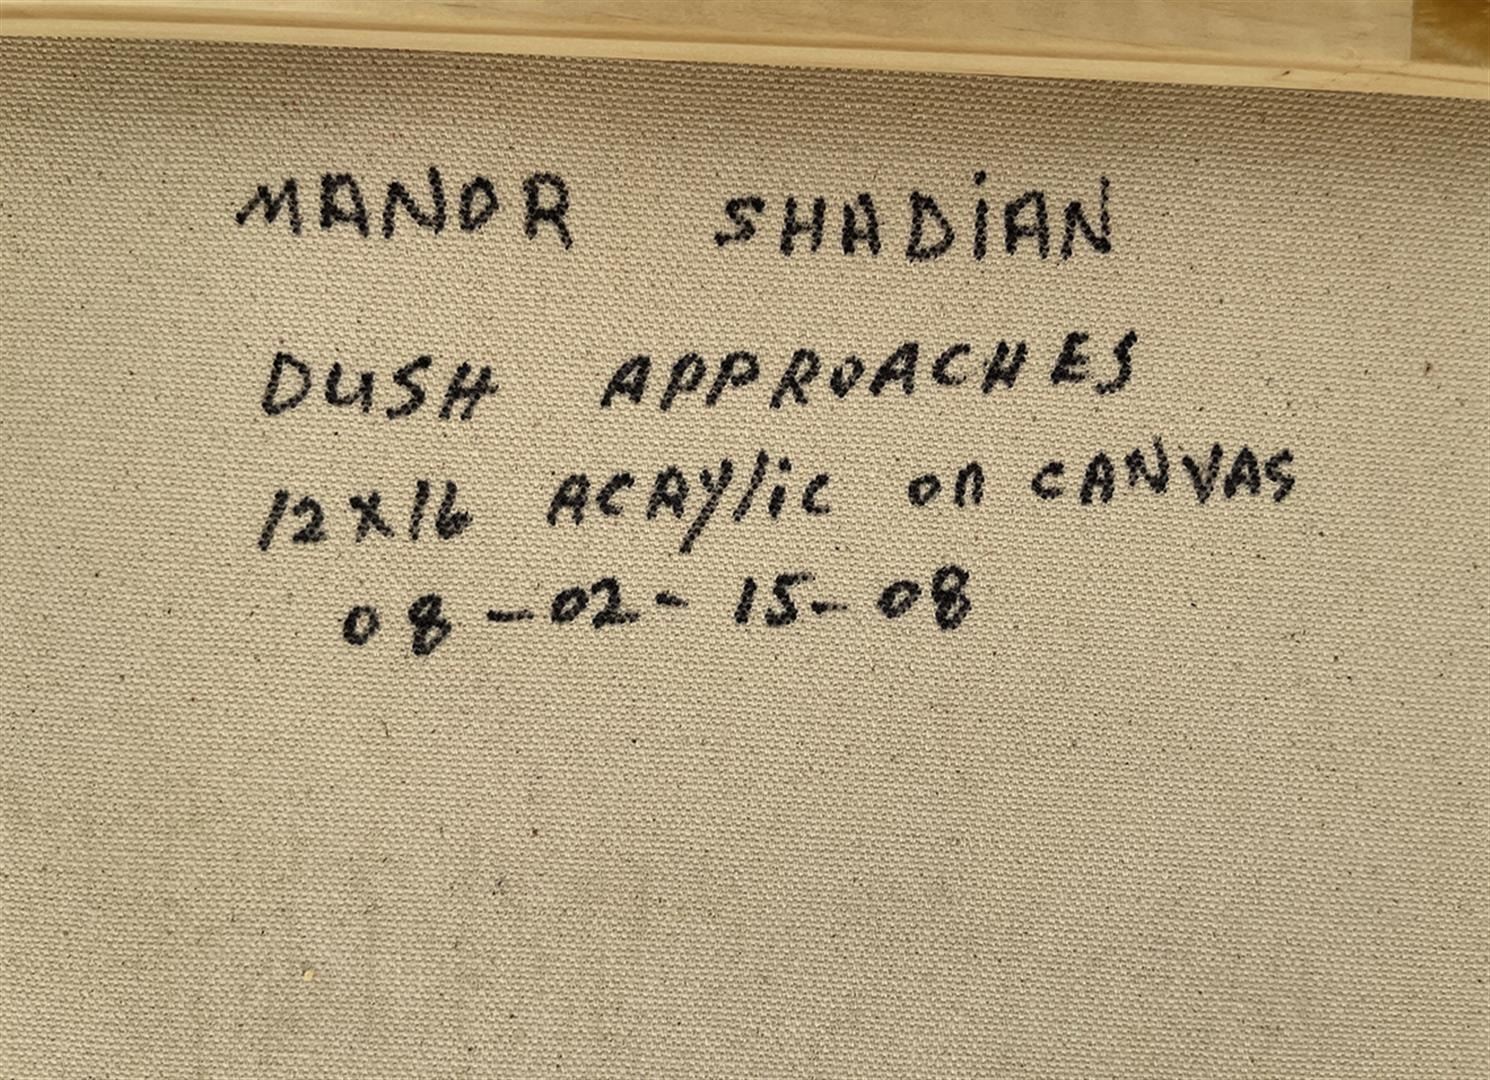 MANOR SHADIAN
DUSH APPROACHES
12x16 ACRYlic on CANVAS
08-02-15-08